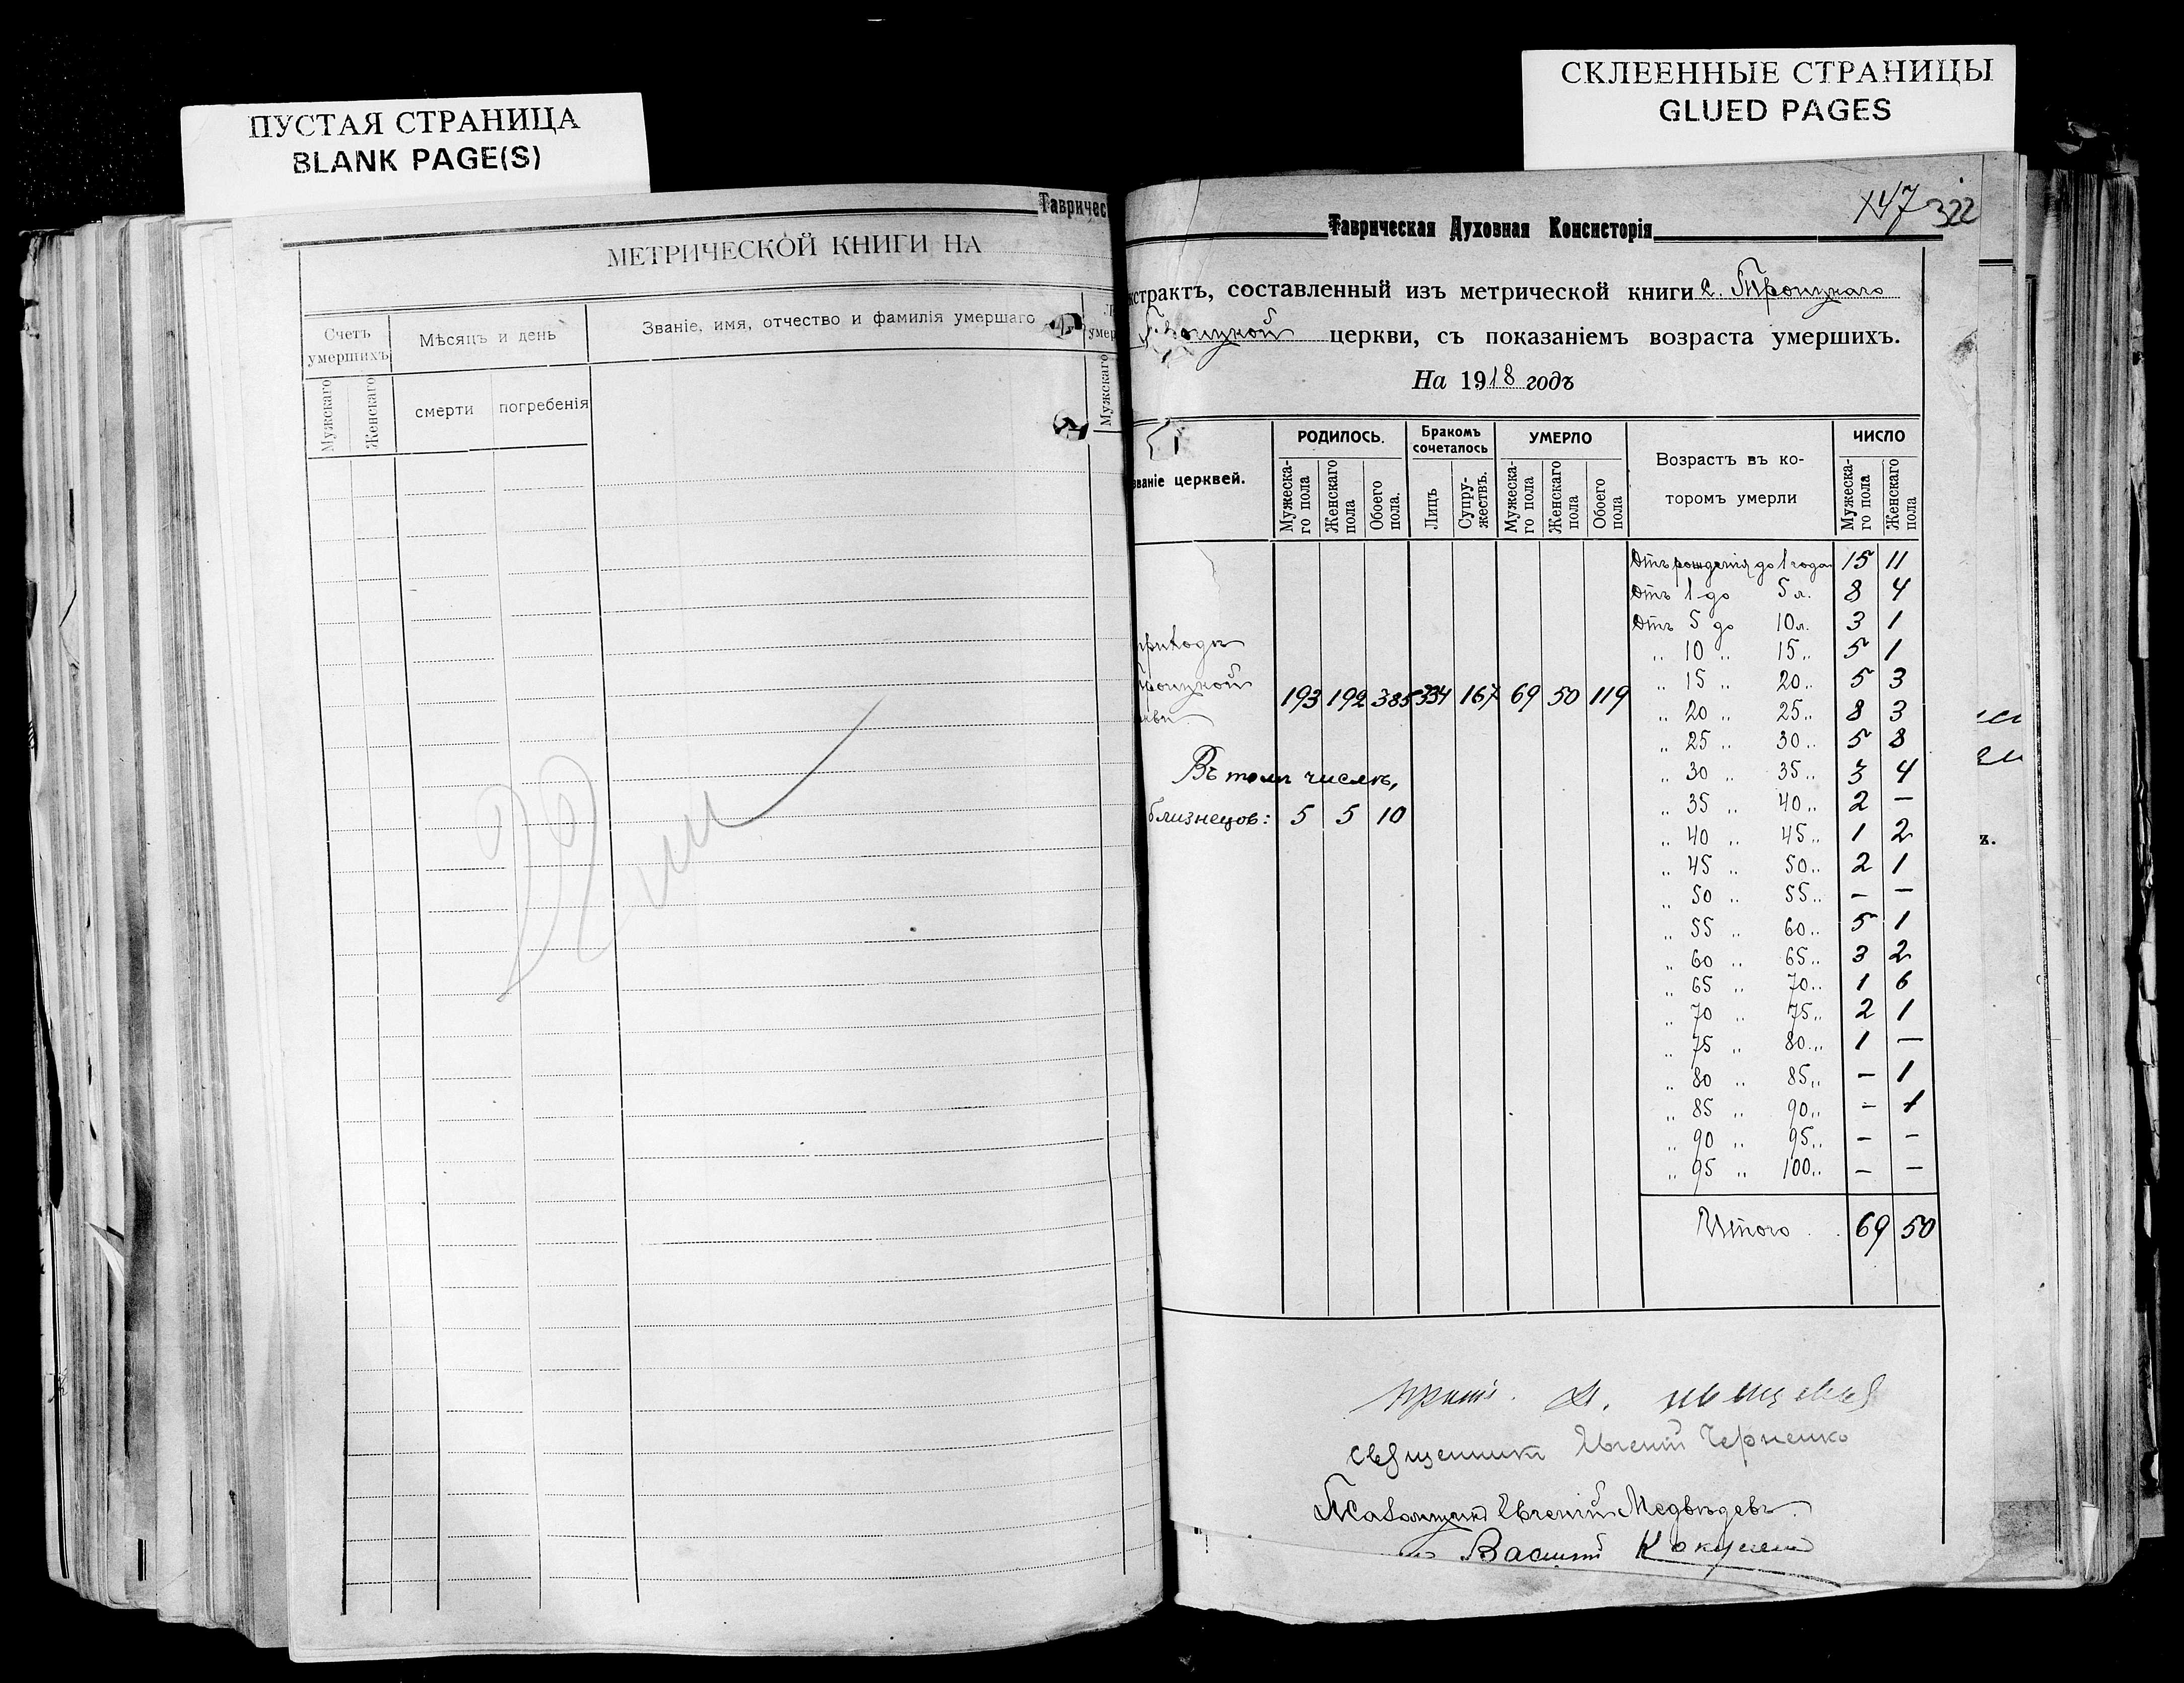 ПУСТАЯ СТРАНИЦА
BLANK PAGE(S)
СКЛЕЕННЫЕ СТРАНИЦЫ
GLUED PAGES
Тавричес
МЕТРИЧЕСКОЙ КНИГИ НА
Счетъ умершихъ
Мѣсяцъ и день
Званіе, имя, отчество и фамилія умершаго
умер
Мужскаго
Женскаго
смерти
погребенія
Мужскаго
147 322
Таврическая Духовная Консисторія
кстрактъ, составленный изъ метрической книги с. Троицкаго
Троицкой церкви, съ показаніемъ возраста умершихъ.
На 1918 годъ
званіе церквей.
РОДИЛОСЬ.
Бракомъ сочеталось
УМЕРЛО
Возрастъ въ ко-
торомъ умерли
ЧИСЛО
Мужеска-го пола
Женскаго пола
Обоего пола.
Лицъ
Супру-жествъ.
Мужеска-го пола
Женскаго пола
Обоего пола
Мужеска-го пола
Женскаго пола
Отъ рожденія до 1 года 15 11
Отъ 1 до 5 л. 8 4
Отъ 5 до 10 л. 3 1
„ 10 „ 15 „ 5 1
„ 15 „ 20 „ 5 3
„ 20 „ 25 „ 8 3
„ 25 „ 30 „ 5 8
„ 30 „ 35 „ 3 4
„ 35 „ 40 „ 2 —
„ 40 „ 45 „ 1 2
„ 45 „ 50 „ 2 1
„ 50 „ 55 „ — —
„ 55 „ 60 „ 5 1
„ 60 „ 65 „ 3 2
„ 65 „ 70 „ 1 6
„ 70 „ 75 „ 2 1
„ 75 „ 80 „ 1 —
„ 80 „ 85 „ — 1
„ 85 „ 90 „ — 1
„ 90 „ 95 „ — —
„ 95 „ 100 „ — —
Итого 69 50
прихода
Троицкой
кви
193 192 385 334 167 69 50 119
Въ томъ числѣ,
близнецов: 5 5 10
священникъ Евгеній Черненко
Псаломщикъ Евгеній Медвѣдевъ.
Василій